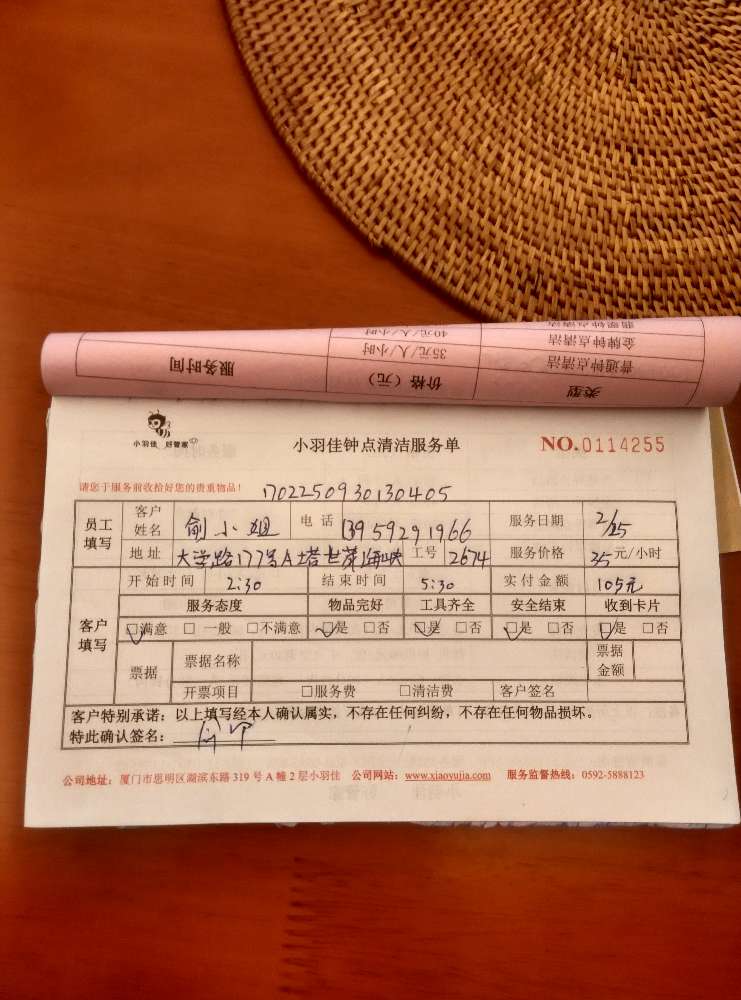 类型 价格（元） 服务时间
普通钟点清洁 35元/人/小时
金牌钟点清洁 40元/人/小时
小羽佳 好管家
小羽佳钟点清洁服务单
NO.0114255
请您于服务前收拾好您的贵重物品！
170225093013040 5
员工填写 客户姓名 俞小姐 电话 13959291966 服务日期 2/25
地址 大学路177号A塔世茂海峡 工号 2674 服务价格 35元/小时
开始时间 2:30 结束时间 5:30 实付金额 105元
客户填写 服务态度 物品完好 工具齐全 安全结束 收到卡片
☑满意 □一般 □不满意 ☑是 □否 ☑是 □否 ☑是 □否 ☑是 □否
票据 票据名称 票据金额
开票项目 □服务费 □清洁费 客户签名
客户特别承诺：以上填写经本人确认属实，不存在任何纠纷，不存在任何物品损坏。
特此确认签名：
公司地址：厦门市思明区湖滨东路319号A幢2层小羽佳 公司网站：www.xiaoyujia.com 服务监督热线：0592-5888123